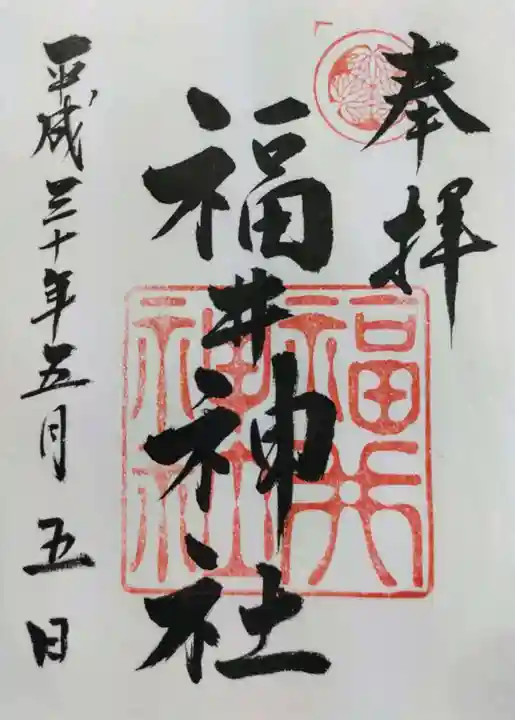 奉拝
福井神社
福井神社
平成三十年五月五日